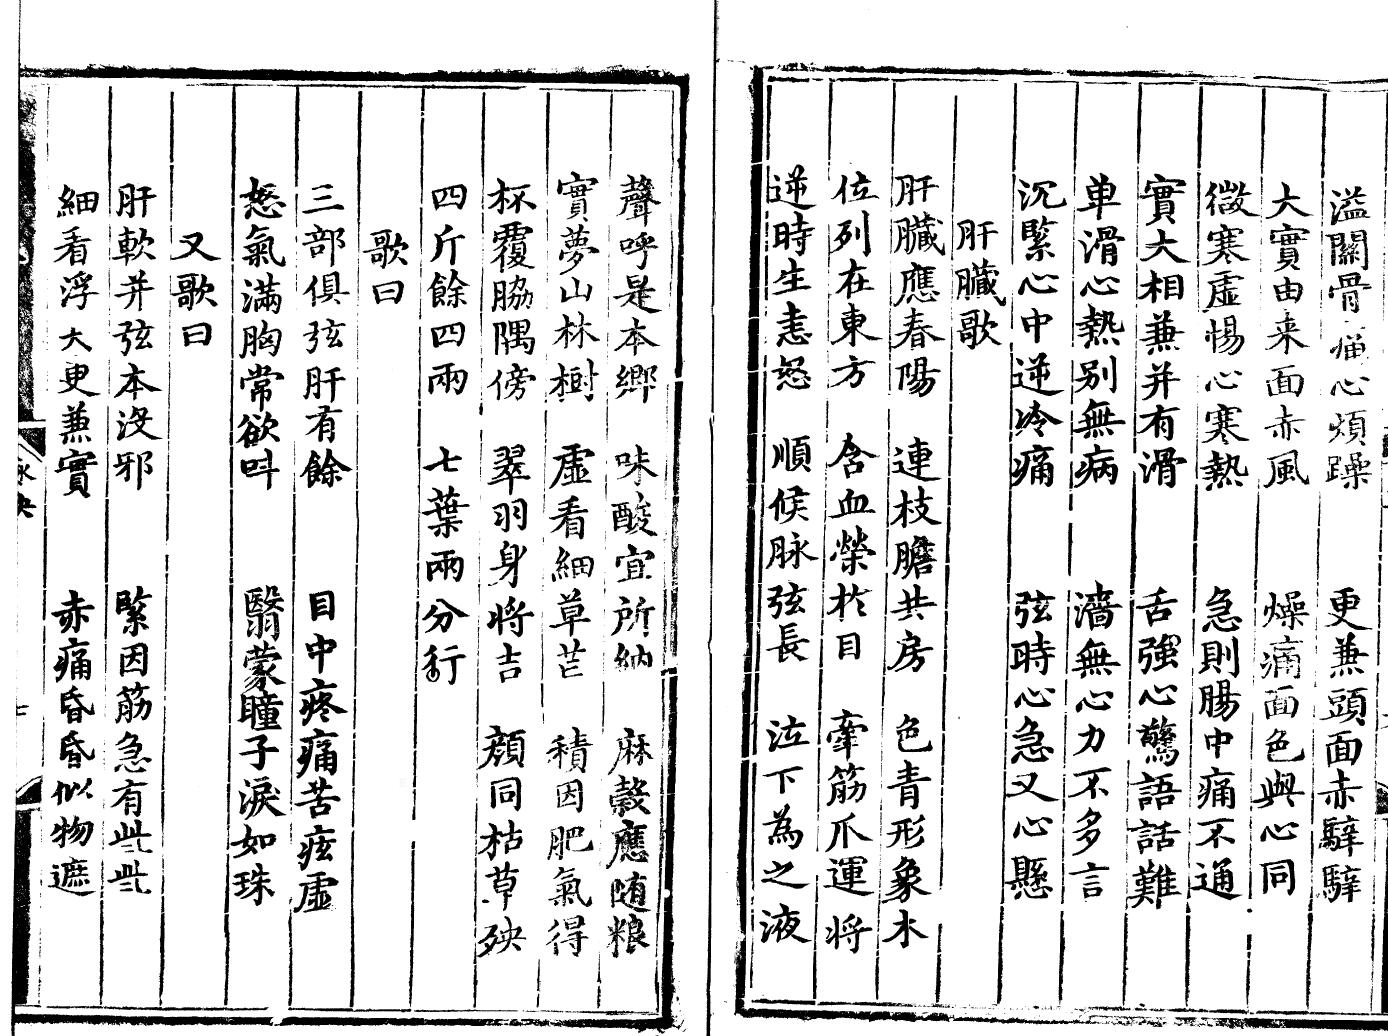 溢關骨痛心煩躁 更兼頭面赤騂騂
大實由来面赤風 燥痛面色與心同
微寒虛惕心寒熱 急則腸中痛不通
實大相兼并有滑 舌強心驚語話難
单滑心熱别無病 濇無心力不多言
沉緊心中逆冷痛 弦時心急又心懸
肝臟歌
肝臟應春陽 連枝膽共房 色青形象木
位列在東方 含血榮於目 牽筋爪運將
逆時生恚怒 順候脉弦長 泣下為之液
聲呼是本鄉 味酸宜所納 麻穀應随粮
實夢山林樹 虛看細草芒 積因肥氣得
杯覆脇隅傍 翠羽身將吉 顔同枯草殃
四斤餘四兩 七葉兩分行
歌曰
三部俱弦肝有餘 目中疼痛苦痃虛
怒氣滿胸常欲呌 翳蒙瞳子淚如珠
又歌曰
肝軟并弦本沒邪 緊因筋急有些些
細看浮大更兼實 赤痛昏昏似物遮